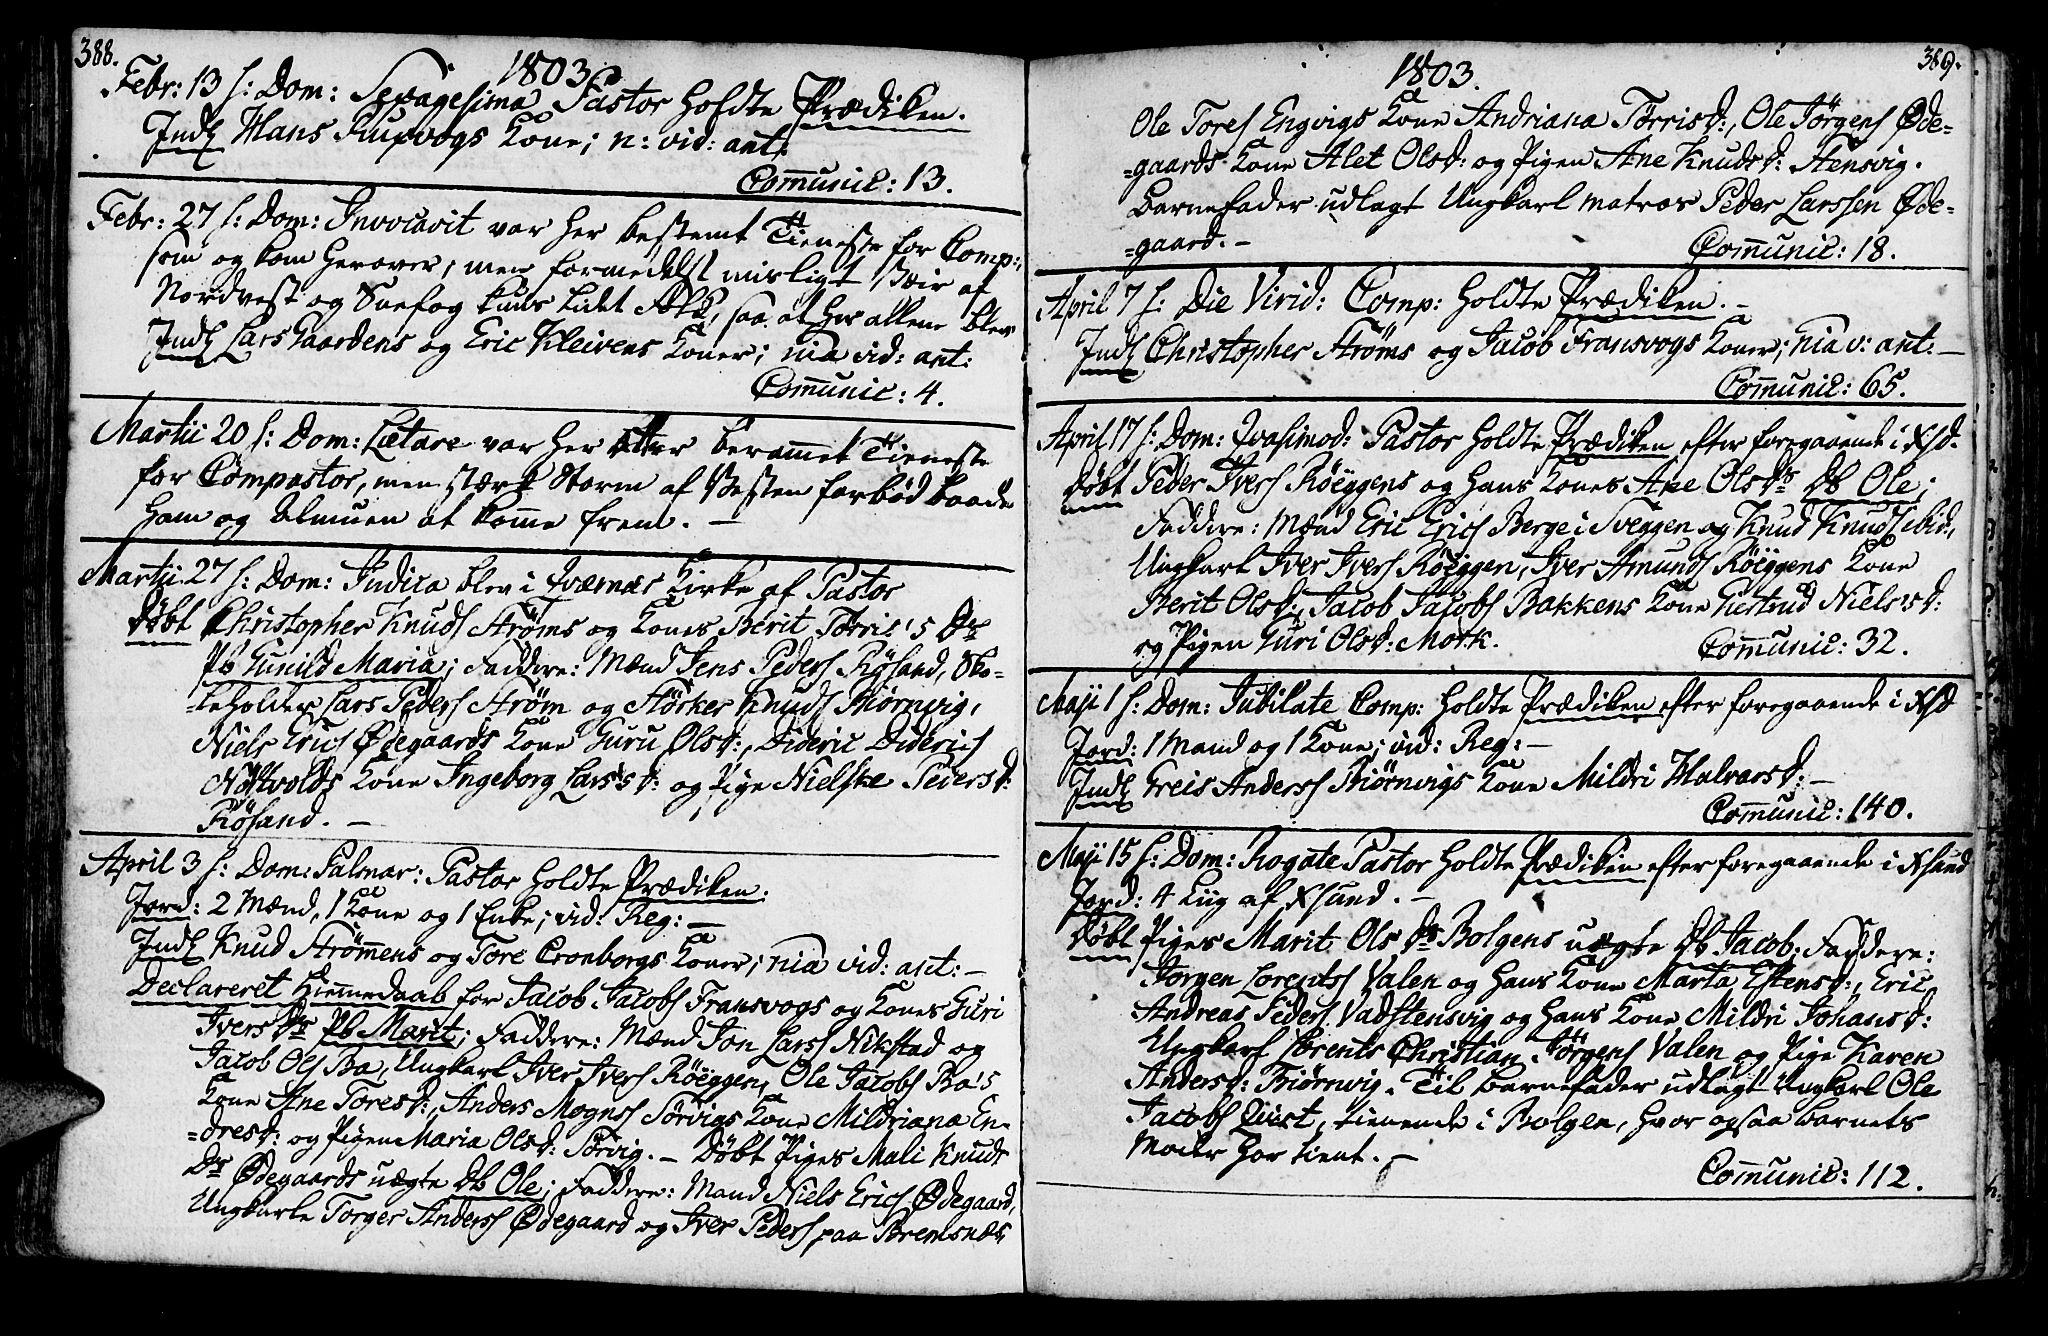 388.
1803.
Febr: 13 f: Dom: Sexagesima Pastor holdte Prædiken.
Indl Hans Kupvogs Kone; n: vid: ant:
Comunic: 13.
Febr: 27 f: Dom: Invocavit var her bestemt Tieneste for Comp:
som og kom herover, men formedelst misligt Veir af
Nordvest og Snefog kuns lidt Folk, saa at her allene blev
Indl Lars Gaardens og Eric Kleivens Koner; nia vid: ant:
Comunic: 4.
Martii 20 f: Dom: Lætare var her berammet Tieneste
for Compastor, men stærk Storm af Vesten forbød baade
ham og Almuen at komme frem. —
Martii 27 f: Dom: Judica blev i Qværnæs Kirke af Pastor
Døbt Christopher Knuds Strøms og Kones Berit Torris's Dr
Pb Gunild Maria; Faddere: Mænd Jens Peders Røsand, Sko-
leholder Lars Peders Strøm og Størker Knuds Biørnvig,
Niels Erics Ødegaards Kone Guru Olsd:, Dideric Diderics
Nøstvolds Kone Ingeborg Lars'sd: og Pige Nielske Pedersd:
Røsand. —
April 3 f: Dom: Palmar: Pastor holdte Prædiken.
Jord: 2 Mænd, 1 Kone og 1 Enke; vid: Reg: —
Indl Knud Strømmens og Tore Cronborgs Koner; nia vid: ant: —
Declareret Hiemmedaab for Jacob Jacobs Fransvogs og Kones Guri
Ivers Dr Pb Marit; Faddere: Mænd Jon Lars Nikstad og
Jacob Ols Ba, Ungkarl Iver Ivers Røeggen, Ole Jacobs Ba's
Kone Ane Toresd:, Anders Mogns Sørvigs Kone Mildriana En-
dresd: og Pigen Maria Olsd: Sørvig. — Døbt Piges Mali Knuds
Dr Ødegaards uægte Db Ole; Faddere: Mand Niels Erics Ødegaard,
Ungkarle Torger Anders Ødegaard og Iver Peders paa Bremsnæs
389.
1803.
Ole Tores Engvigs Kone Andriana Torrisd:, Ole Jørgens Øde-
gaards Kone Alet Olsd: og Pigen Ane Knudsd: Stensvig.
Barnefader udlagt Ungkarl matros Peder Larssen Øde-
gaard. —
Comunic: 18.
April 7 f: Die Virid: Comp: holdte Prædiken. —
Indl Christopher Strøms og Jacob Fransvogs Koner; nia v: ant: —
Comunic: 65.
April 17 f: Dom: Qvasimod: Pastor holdte Prædiken efter foregaaende i Xsd.
Døbt Peder Ivers Røeggens og hans Kones Ane Olsdr Db Ole;
Faddere: Mænd Eric Erics Berge i Sveggen og Knud Knuds ibid,
Ungkarl Iver Ivers Røeggen, Iver Amunds Røeggens Kone
Berit Olsd:, Jacob Jacobs Bakkens Kone Giertrud Niels'sd:
og Pigen Guri Olsd: Mork.
Comunic: 32.
Maji 1 f: Dom: Jubilate Comp: holdte Prædiken efter foregaaende i Xsd
Jord: 1 Mand og 1 Kone; vid: Reg: —
Indl Greis Anders Biørnvigs Kone Mildri Halvarsd: —
Comunic: 140.
Maji 15 f: Dom: Rogate Pastor holdte Prædiken efter foregaaende i Xsund
Jord: 4 Liig af Xsund. —
Døbt Piges Marit Ols Dr Bolgens uægte Db Jacob; Faddere:
Jørgen Lorents Valen og hans Kone Marta Estensd:, Eric
Andreas Peders Vadstensvig og hans Kone Mildri Johansd:
Ungkarl Lorents Christian Jørgens Valen og Pige Karen
Andersd: Biørnvig. Til Barnefader udlagt Ungkarl Ole
Jacobs Qvist, tienende i Bolgen, hvor ogsaa Barnets
Moder har tient. —
Comunic: 112.